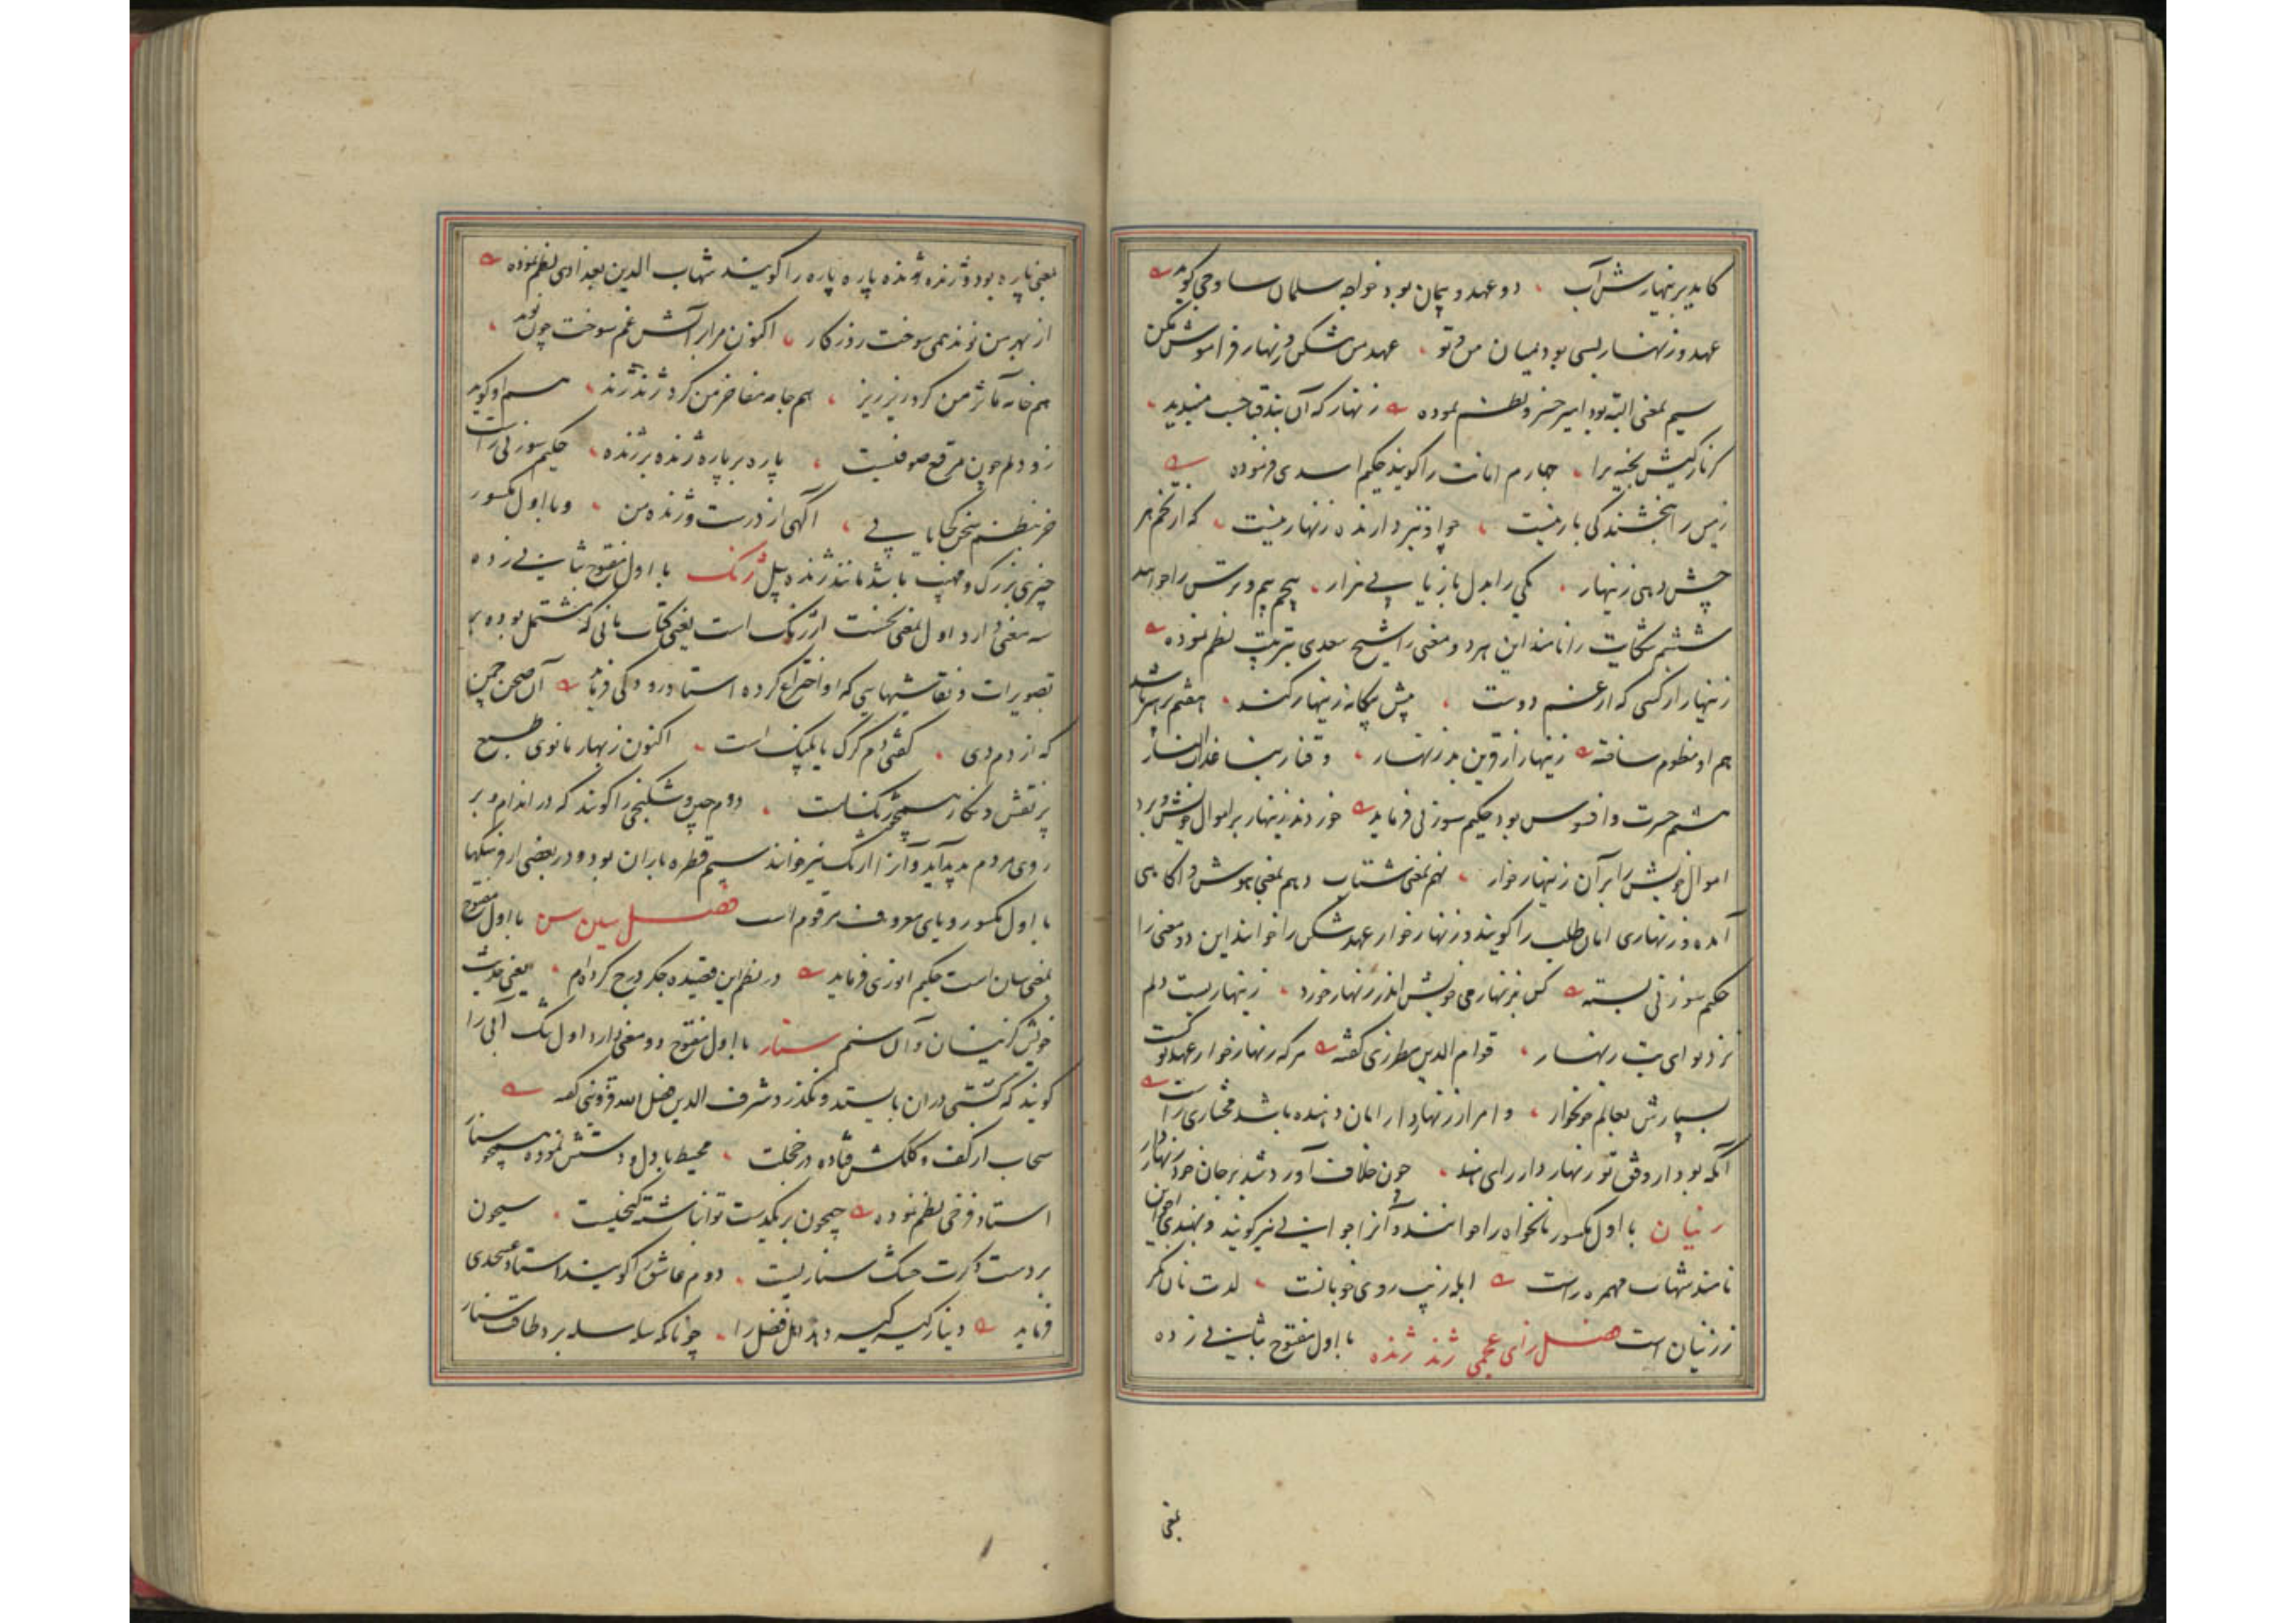 کاید بزینهار شش آب دو عهد و پیمان بود خواجه سلمان ساوجی گوید
عهد و زنهار بسی بود میان من و تو عهد من مشکن و زنهار فراموش مکن
سیم بمعنی البته بود امیر خسرو نظم نموده زنهار که آن بند قبا چست مبندید
کز نازکیش بخیه برا چهارم امانت را گویند حکیم اسدی فرموده
زمین را بخشندگی یار نیست چو او نیز دارنده زنهار نیست که از تخم هر
چش دهی زنهار یکی را بدل باز یابی هزار پنجم بیم و ترس را خوانند
ششم شکایت را نامند این هر دو معنی را شیخ سعدی بترتیب نظم نموده
زینهار از کسی که از غم دوست پیش بیگانه زینهار کند هفتم پرهیز باشد
هم او منظوم ساخته زینهار از قرین بد زنهار وقنا ربنا عذاب النار
هشتم حسرت و افسوس بود حکیم سوزنی فرماید خوردند زینهار بر اموال خویش و برد
اموال خویش را بر آن زینهار خوار نهم بمعنی شتاب دهم بمعنی هوش و آگاهی
آمده و زنهاری امان طلب را گویند و زنهار خوار عهد شکن را خوانند این دو معنی را
حکیم سوزنی بسته کس بزنهار می خویش اندر زنهار خورد زینهاریست دلم
نزد تو ای بت زنهار قوام الدین مطرزی گفته هر که زنهار خوار عهد تو گشت
بسپارش بعالم خونخوار و امرا از زنهار دار امان دهنده باشد مختاری راست
آنکه بود از وفق تو زنهار دار رای هند چون خلاف آورد شد بر جان خود زنهار دار
زنیان با اول مکسور نانخواه را خوانند و آنرا جوانی نیز گویند و بهندی اجواین
نامند شهاب مهمره راست ابله زیب روی خوبانست لذت نان مگر
ز زنیان است فصل زای عجمی ژند ژنده با اول مفتوح بثانی زده
بمعنی
بمعنی پاره بود و ژنده ژنده پاره پاره را گویند شهاب الدین بغدادی نظم نموده
از بهر من نوند همی سوخت روزگار اکنون مرا بر آتش غم سوخت چون نوند
هم خانه مآثر من کرد ریز ریز هم جامه مفاخر من کرد ژند ژند هم او گوید
زو دلم چون مرقع صوفیست پاره بر پاره ژنده بر ژنده حکیم سوزنی راست
خر بنظم سخن کجا یابی آگهی از درست و ژنده من و با اول مکسور
چیزی بزرگ و مهیب باشد مانند ژنده پیل ژنگ با اول مفتوح بثانی زده
سه معنی دارد اول بمعنی نخست ارژنگ است یعنی کتاب مانی که مشتمل بوده بر
تصویرات و نقاشیهایی که او اختراع کرده استاد رودکی فرماید آن صحن چمن
که از دم دی گفتی دم گرگ یا پلنگ است اکنون ز بهار مانوی طبع
پر نقش و نگار همچو ژنگ است دوم چین و شکنجی را گویند که در اندام و بر
روی مردم پدید آید و آنرا آژنگ نیز خوانند سیم قطره باران بود و در بعضی از فرهنگها
با اول مکسور و یای معروف مرقوم است فصل سین سن با اول مفتوح
بمعنی سان است حکیم انوری فرماید در نظم این قصیده جگر درج کرده ام یعنی حدیث
خویش کز نیسان و آن سنم سنار با اول مفتوح دو معنی دارد اول تنگ آبی را
گویند که کشتی در آن بایستد و نگذرد شرف الدین فضل الله قزوینی گفته
سحاب از کف و کلکش فتاده در خجلت محیط با دل و دستش نموده همچو سنار
استاد فرخی نظم نموده جیحون بر یکدست تو انباشته گنجیست سیحون
بر دست دگرت خشک سناریست دوم عاشق را گویند استاد عسجدی
فرماید دینار کیسه کیسه دهد اهل فضل را چونانکه سله سله برد طاقت سنار